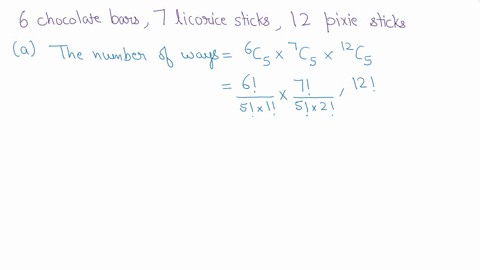 6 chocolate bars, 7 licorice sticks, 12 pixie sticks
(a) The number of ways = ⁶C₅ × ⁷C₅ × ¹²C₅
= 6!/(5!×1!) × 7!/(5!×2!) , 12!